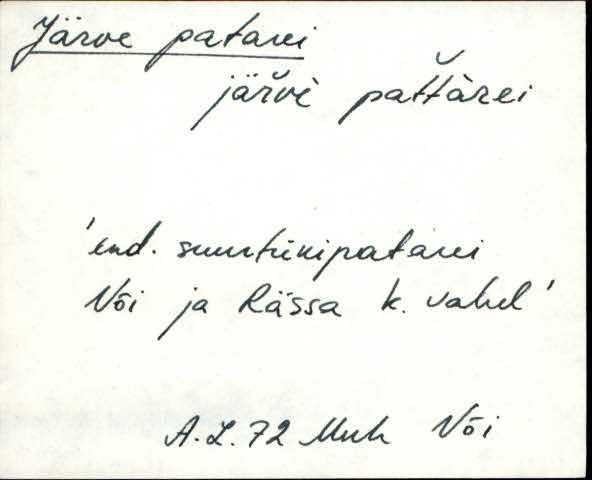 Järve patarei
järvè pattàrei
'end. suurtükipatarei
Või ja Rässa k. vahel'
A.L.72 Muh Või